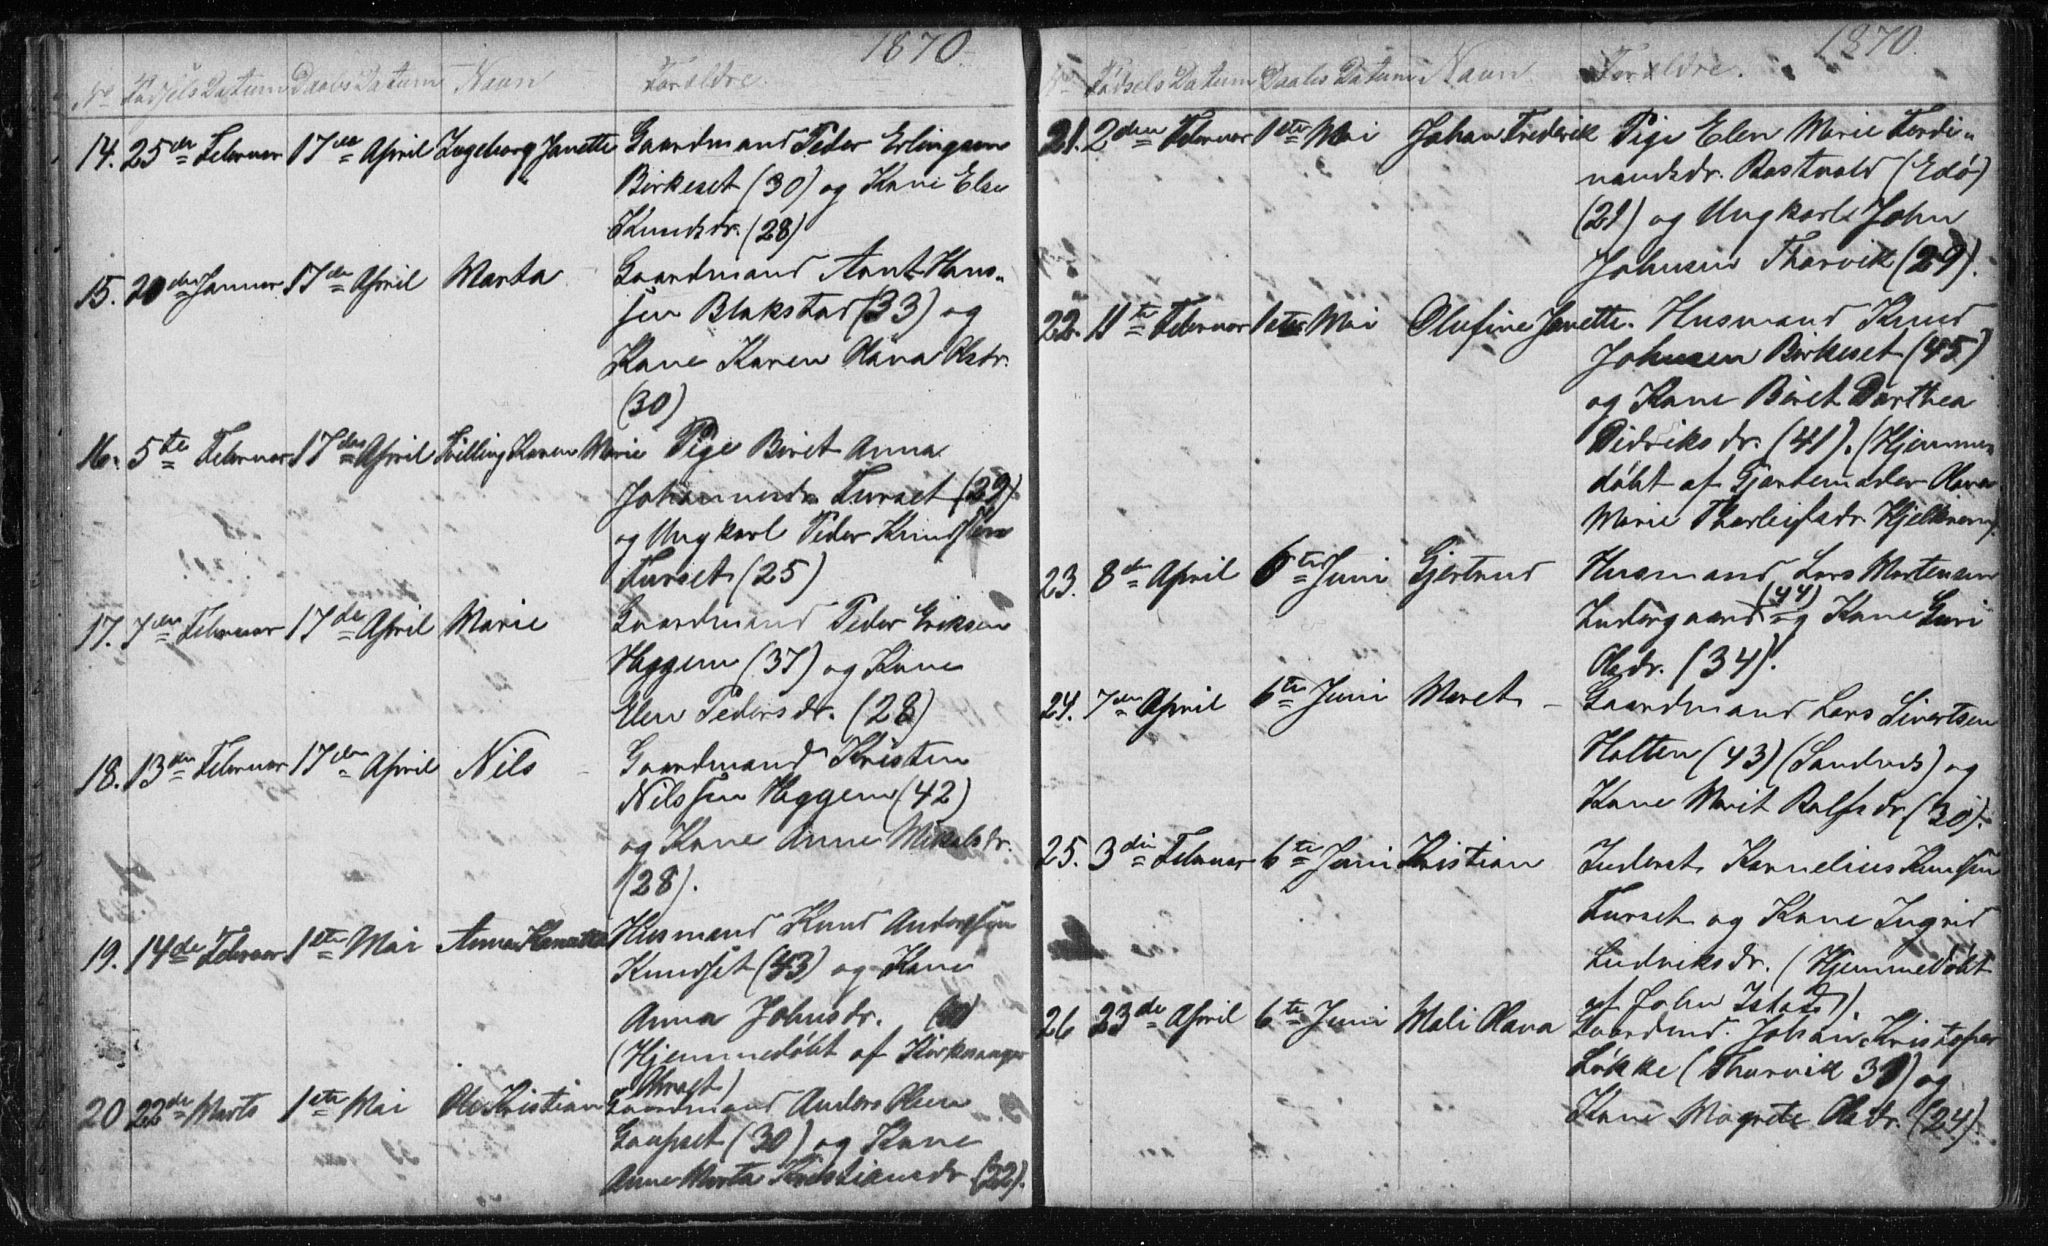 1870.
No Fødsels Datum Daabs Datum Navn Forældre.
14. 25de Februar 17de April Ingeborg Janette Gaardmand Peder Erlingsen
Birkeset (30) og Kone Else
Knudsdr. (28)
15. 20de Januar 17de April Marta Gaardmand Arnt Hans-
sen Blakstad (33) og
Kone Karen Olava Olsdr.
(30)
16. 5te Februar 17de April Tvilling Karen Marie Pige Beret Anna
Johannesdr. Furset (29)
og Ungkarl Peder Knudssen
Furset (25)
17. 7de Februar 17de April Marie Gaardmand Peder Eriksen
Heggem (37) og Kone
Elen Pedersdr. (28)
18. 13de Februar 17de April Nils Gaardmand Kristen
Nilssen Heggem (42)
og Kone Anne Mikalsdr.
(28).
19. 14de Februar 1ste Mai Anna Husmand Knud Anderssen
Knudset (43) og Kone
Anna Johnsdr.
(Hjemmedøbt af Kirkesanger
20 22de Marts 1ste Mai Ole Kristian Gaardmand Anders Olsen
Gaupset (30) og Kone
Anne Marta Kristiansdr (22).
1870.
No Fødsels Datum Daabs Datum Navn Forældre.
21. 2den Februar 1ste Mai Johan Frederik Pige Elen Marie Ferdi-
nandsdr. Bostvold (Edø)
(21) og Ungkarl John
Johnsen Thorvik (29).
22. 11te Februar 1ste Mai Olufine Janette. Husmand Knud
Johnsen Birkeset (45)
og Kone Beret Dorthea
Didriksdr. (41). (Hjemme-
døbt af Gjordemoder Olava
Marie Thorleifsdr. Hjelkrem).
23. 8de April 6te Juni Gjertrud Husmand Lars Mortensen
(44)
Indergaard og Kone Guri
Olsdr. (34).
24. 7de April 6te Juni Meret Gaardmand Lars Sivertsen
Holten (43) (Sandnes) og
Kone Marit Rolfsdr. (30).
25. 3die Februar 6te Juni Kristian Inderst Kornelius Knudsen
Furset og Kone Ingrid
Ludviksdr. (Hjemmedøbt
af John
26 23de April 6te Juni Mali Olava Gaardmd. Johan Kristofer
Løkke (Thorvik 30) og
Kone Magrete Olsdr. (24).